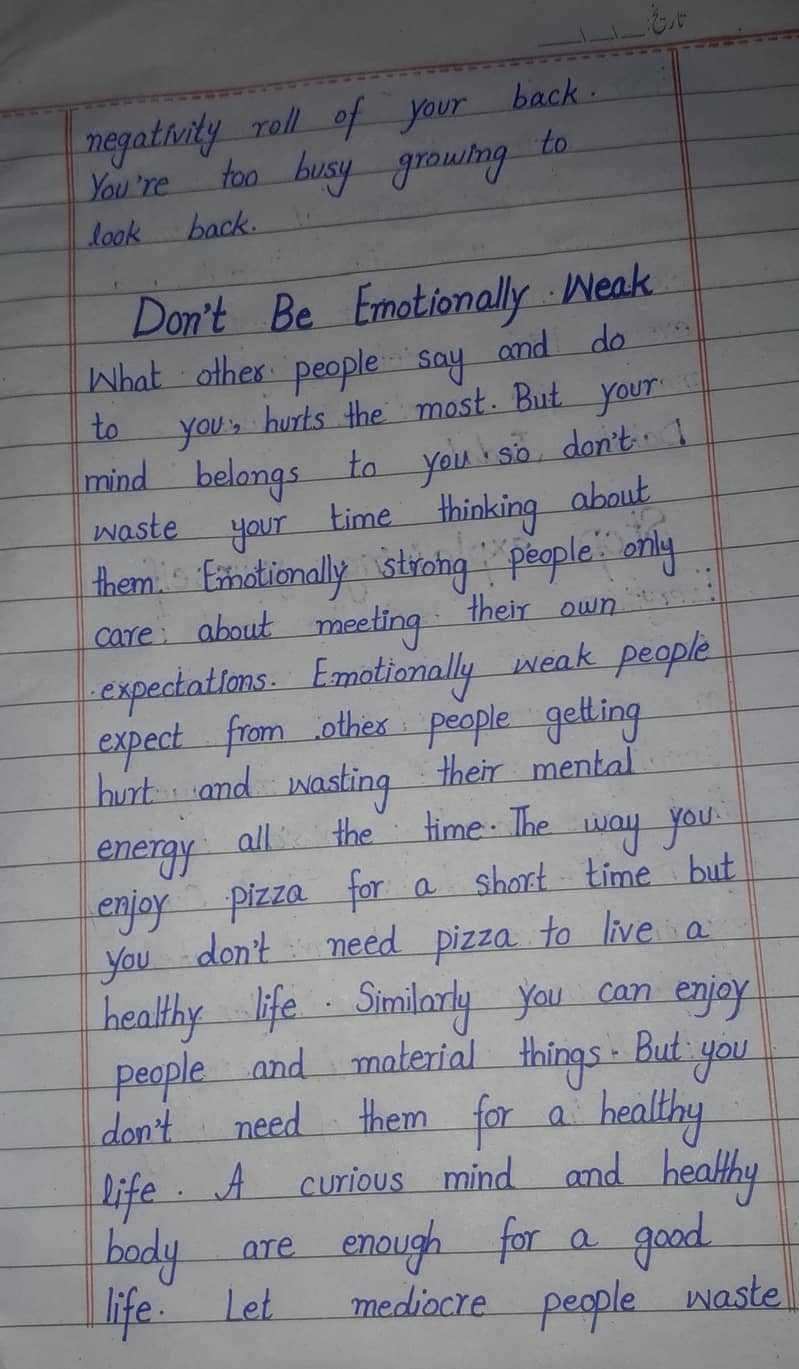 تاریخ: __/__/__
negativity roll of your back.
You're too busy growing to
look back.
Don't Be Emotionally Weak
What other people say and do
to you, hurts the most. But your
mind belongs to you so don't
waste your time thinking about
them. Emotionally strong people only
care about meeting their own
expectations. Emotionally weak people
expect from other people getting
hurt and wasting their mental
energy all the time. The way you
enjoy pizza for a short time but
you don't need pizza to live a
healthy life. Similarly you can enjoy
people and material things. But you
don't need them for a healthy
life. A curious mind and healthy
body are enough for a good
life. Let mediocre people waste